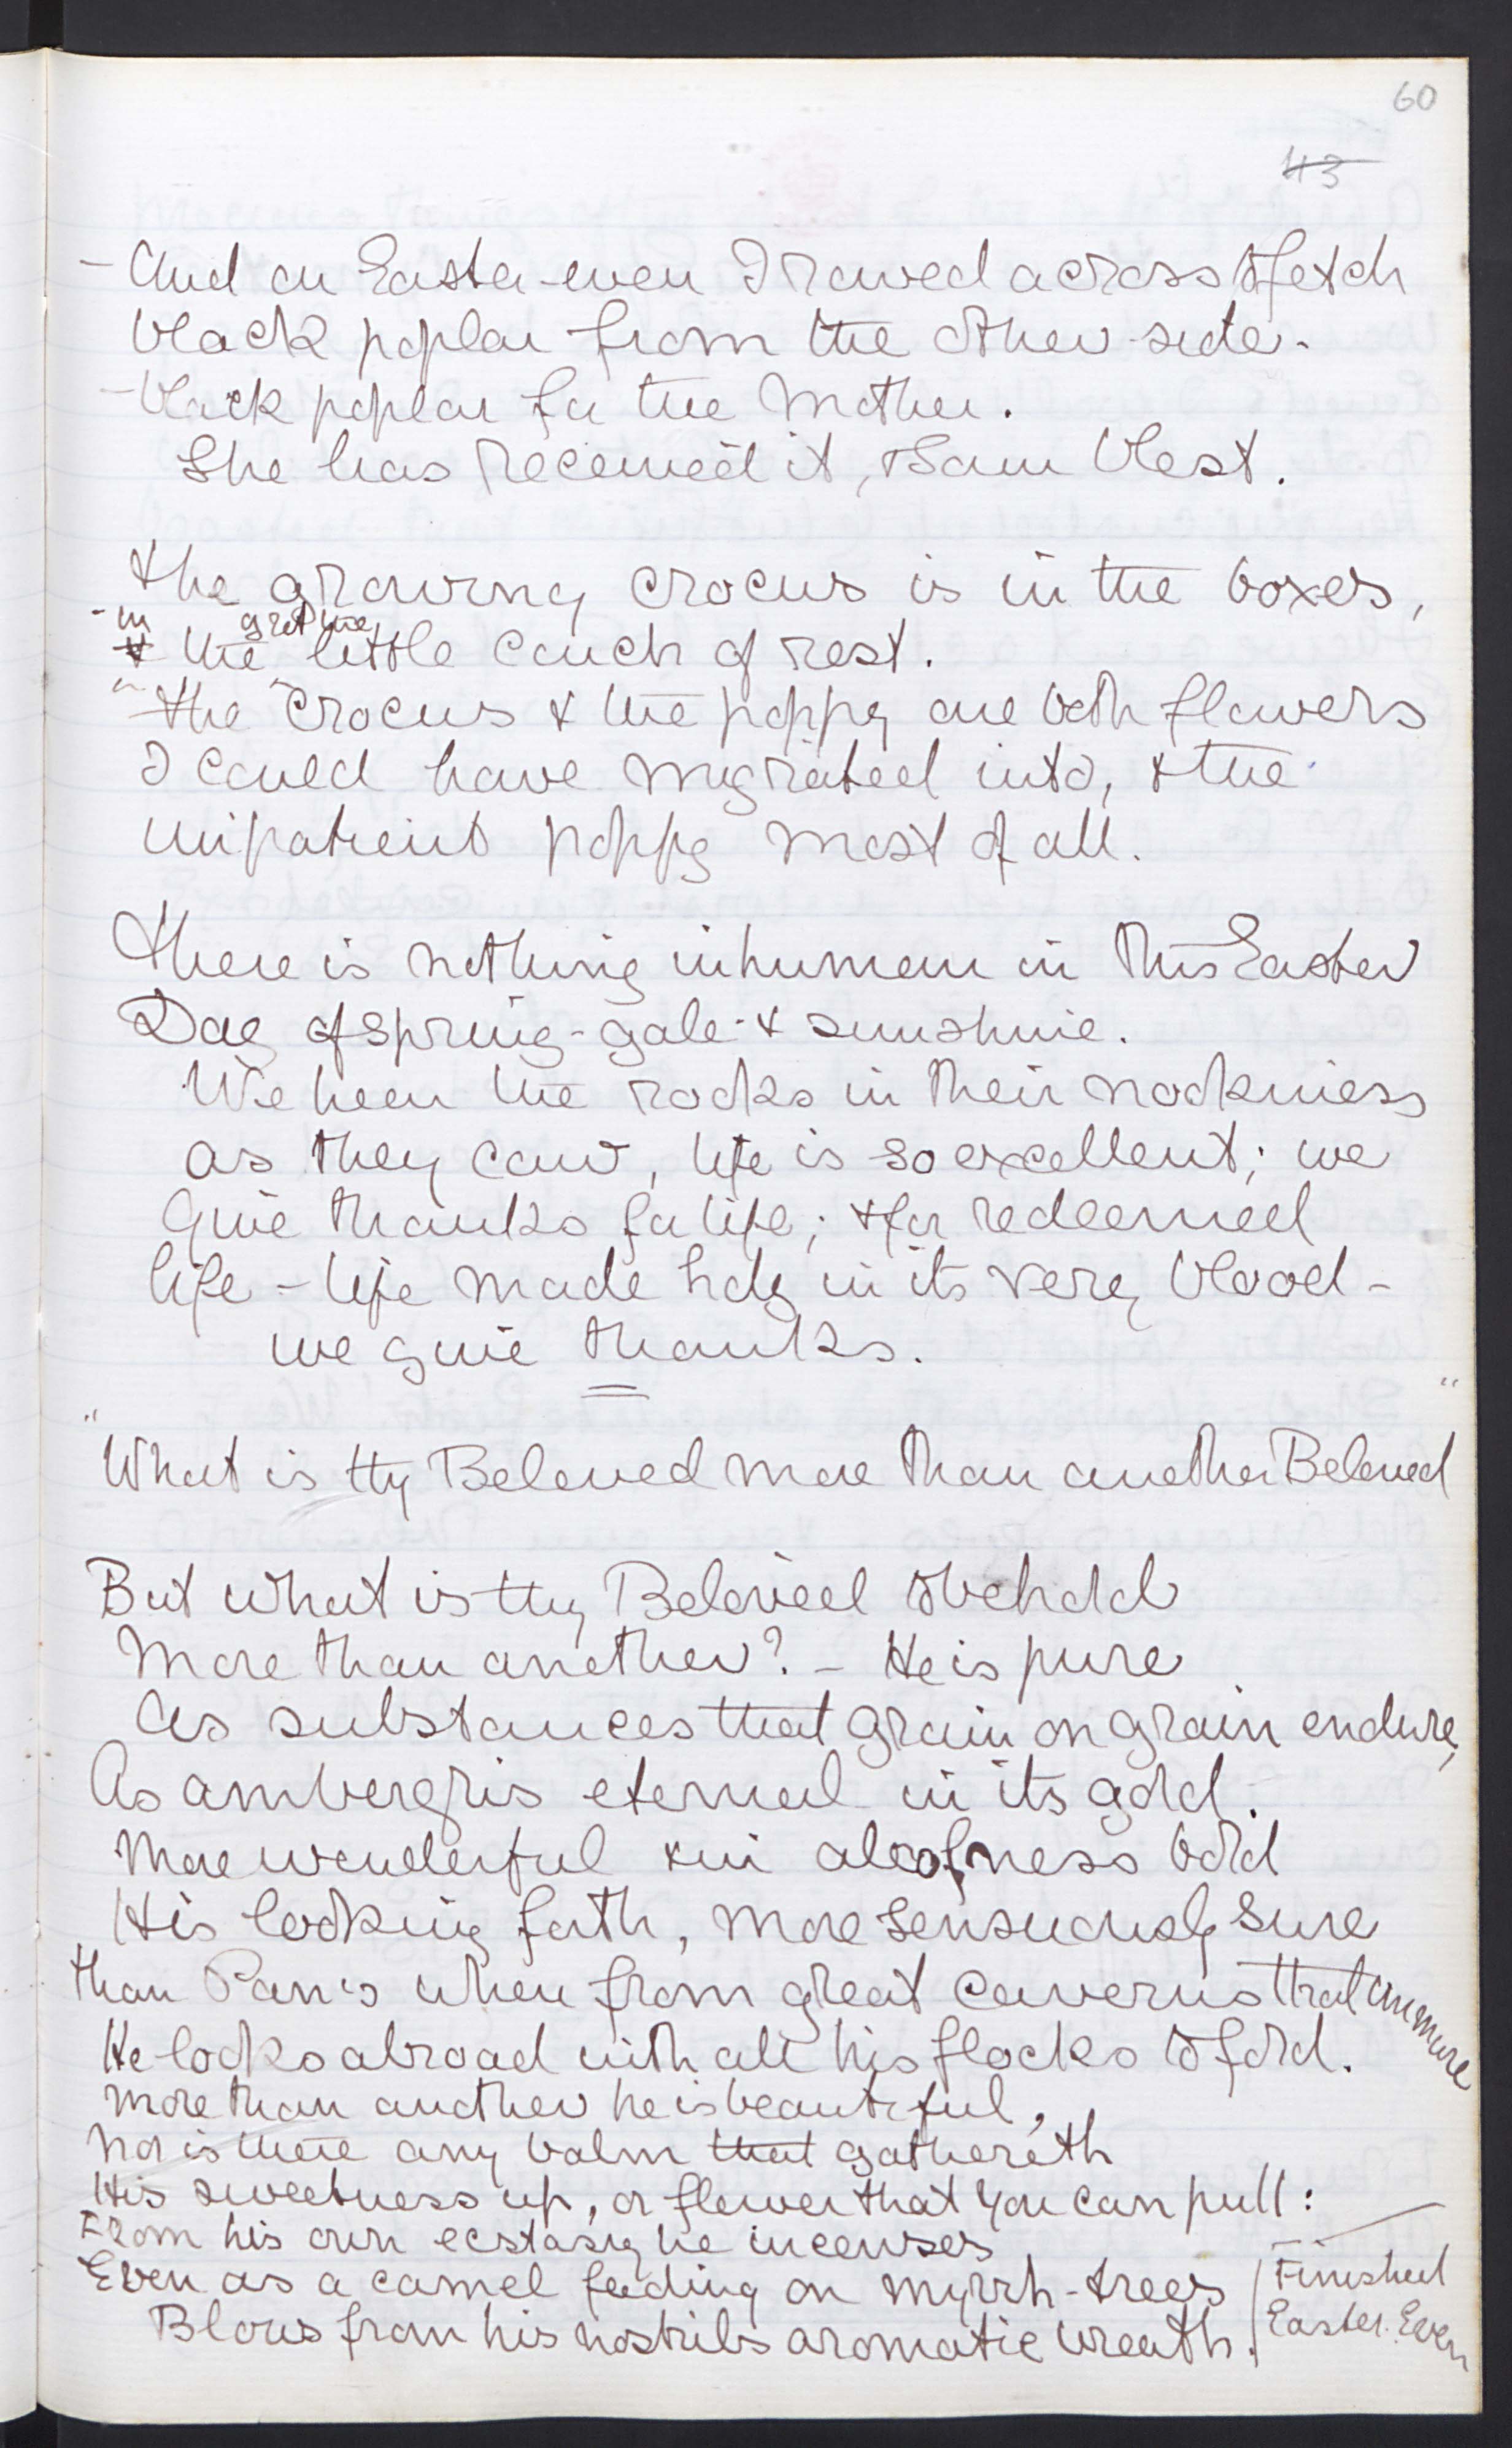 60
43
- And on Easter-even I rowed across to fetch
black poplar from the other-side.
- black poplar for the Mother.
She has received it, & I am blest.
The growing crocus is in the boxes,
- in
& the little couch of rest.
The crocus & the poppy are both flowers
I could have migrated into, & the
impatient poppy most of all.
There is nothing inhuman in this Easter
Day of spring-gale & sunshine.
We hear the rooks in their rookiness
as they caw, life is so excellent; we
give thanks for life; & for redeemed
life - life made holy in its very blood -
we give thanks.
"What is thy Beloved more than another Beloved"
But what is thy Beloved to behold
More than another? - He is pure
As substances that grain on grain endure,
As ambergris eternal in its gold.
More wonderful & in aloofness bold
His looking forth, more sensuously sure
Than Pan's when from great caverns that immure
He looks abroad with all his flocks to fold.
More than another he is beautiful,
Nor is there any balm that gathereth
His sweetness up, or flower that you can pull:
From his own ecstasy he incenses
Even as a camel feeding on myrrh-trees
Blows from his nostrils aromatic wreath.
Finished
Easter. Even